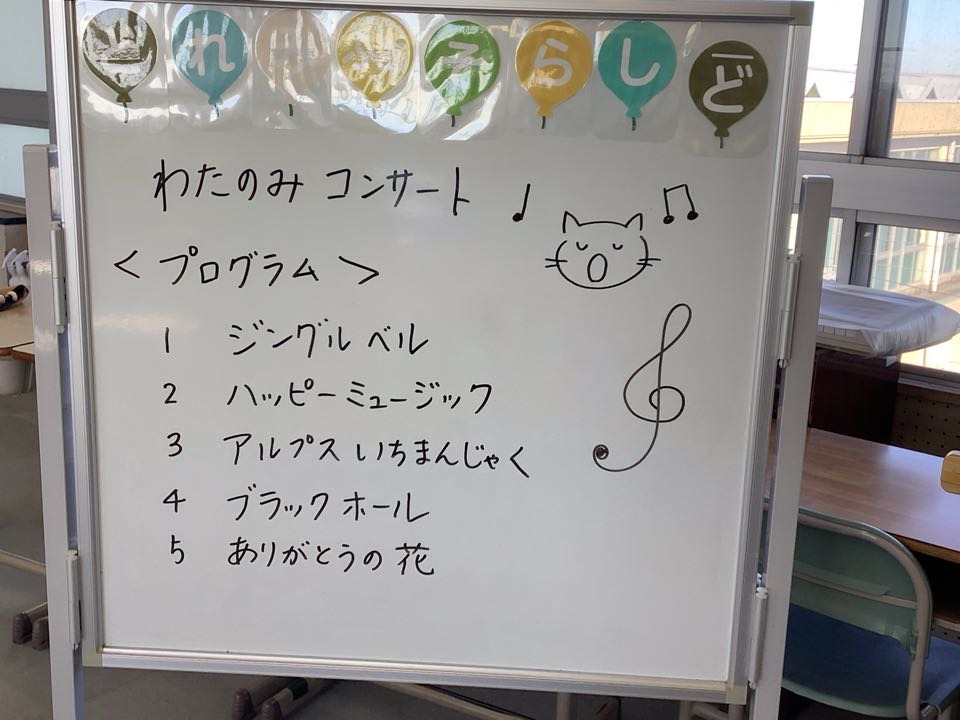 どれみふぁそらしど
わたのみ コンサート
＜プログラム＞
1 ジングルベル
2 ハッピーミュージック
3 アルプス いちまんじゃく
4 ブラックホール
5 ありがとうの花